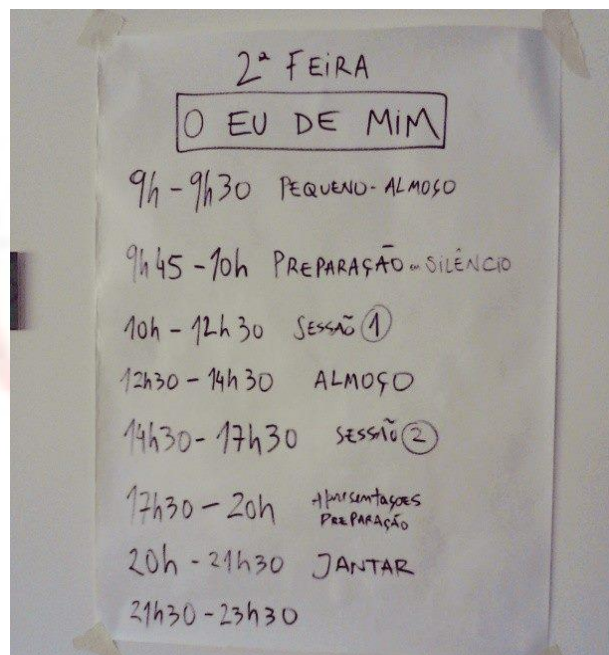 2ª FEIRA
O EU DE MIM
9h - 9h30 PEQUENO-ALMOÇO
9h45 - 10h PREPARAÇÃO - SILÊNCIO
10h - 12h30 SESSÃO 1
12h30 - 14h30 ALMOÇO
14h30 - 17h30 SESSÃO 2
17h30 - 20h Apresentações
PREPARAÇÃO
20h - 21h30 JANTAR
21h30 - 23h30